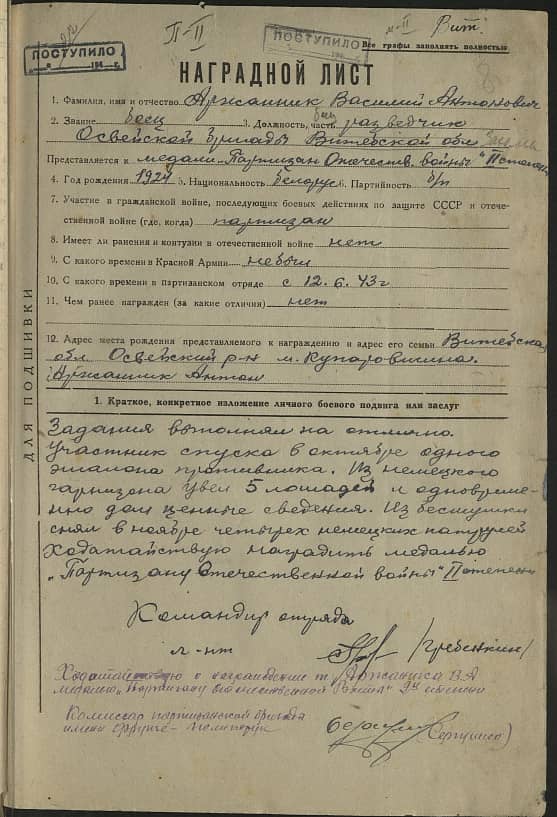 П-II
Вит.
ПОСТУПИЛО
194 г.
ПОСТУПИЛО
194 г.
Все графы заполнять полностью
НАГРАДНОЙ ЛИСТ
1. Фамилия, имя и отчество Аржанник Василий Антонович
2. Звание боец 3. Должность, часть разведчик
Освейской бригады Витебской обл
Представляется к медали „Партизан Отечеств. войны" II степени
4. Год рождения 1924 5. Национальность белорус 6. Партийность б/п
7. Участие в гражданской войне, последующих боевых действиях по защите СССР и отече-
ственной войне (где, когда) партизан
8. Имеет ли ранения и контузии в отечественной войне нет
9. С какого времени в Красной Армии не был
10. С какого времени в партизанском отряде с 12.6.43 г
11. Чем ранее награжден (за какие отличия) нет
12. Адрес места рождения представляемого к награждению и адрес его семьи Витебская
обл. Освейский р-н
Аржанник Антон
ДЛЯ ПОДШИВКИ
1. Краткое, конкретное изложение личного боевого подвига или заслуг
Задания выполнял на отлично.
Участник спуска в октябре одного
эшалона противника. Из немецкого
гарнизона увел 5 лошадей и одновреме-
нно дал ценные сведения. Из бесшумки
снял в ноябре четырех немецких патрулей
Ходатайствую наградить медалью
„Партизану Отечественной войны" II степени
Командир отряда
л-нт /Гребенкин/
Ходатайствую о награждении т. Аржанника В.А
медалью „Партизану отечественной войны" 2й степени
Комиссар партизанской бригады
имени Фрунзе - политрук